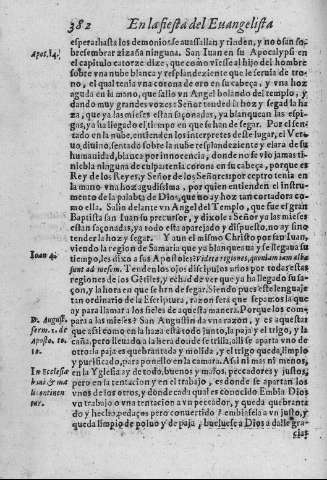 382 En la fiesta del Euangelista
esperar hasta los demonios se auassallan y rinden, y no osan so-
bresembrar zizaña ninguna. San Iuan en su Apocalypsi en
Apoc.14.
el capitulo catorze dize, que como viesse al hijo del hombre
sobre vna nube blanca y resplandeziente que le seruia de tro-
no, el qual tenia vna corona de oro en su cabeça, y vna hoz
aguda en la mano, que salio vn Angel bolando del templo, y
dando muy grandes vozes: Señor tended la hoz y segad la ha
za, que ya las mieses estan saçonadas, ya blanquean las espi-
gas, ya ha llegado el tiempo en que se han de segar. Por el sen-
tado en la nube, entienden los interpretes deste lugar, el Ver-
uo, diuino, sentado sobre la nube resplandeziente y clara de su
humanidad, blanca por innocencia, donde no se vio jamas ti-
niebla ninguna de culpa: tenia corona en su cabeça, porque es
Rey de los Reyes, y Señor de los Señores: por ceptro tenia en
la mano vna hoz agudissima, por quien entienden el instru-
mento de la palabra de Dios, que no ay hoz tan cortadora co-
mo ella. Salio delante vn Angel del Templo, que fue el gran
Baptista san Iuan su precursor, y dixole: Señor ya las mieses
estan saçonadas, ya todo esta aparejado y dispuesto, no ay sino
tender la hoz y segar. Y aun el mismo Christo por san Iuan,
Ioan 4.
viendo la region de Samaria que ya blanquea y se llegaua su
tiempo, les dixo a sus Apostoles: Videte regiones, quoniam iam albæ
sunt ad messem. Tended los ojos discipulos mios por todas estas
regiones de los Gẽtiles, y echad de ver que ya ha llegado su sa-
çon, y la hora en que se hã de segar. Siendo pues este lenguaje
tan ordinario de la Escriptura, razon sera que sepamos la que
ay para llamar a los fieles de aquesta manera. Porque los com-
D. August.
serm. 2. de
Aposto. to.
10.
para a las mieses? San Augustin da vna razon, y es aquesta:
que assi como en la haza esta todo junto, la paja y el trigo, y la
caña, pero llegado a la hera donde se trilla, alli se aparta vno de
otro: la paja es quebrantada y molida, y el trigo queda limpio
y purificado, para ponello en la camara. Assi ni mas ni menos,
In Ecclesiæ
en la Yglesia ay de todo, buenos y malos, peccadores y justos,
pero en la tentacion y en el trabajo, es donde se apartan los
vnos de los otros, y donde cada qual es conocido. Embia Dios
vn trabajo o vna tentacion a vn peccador, y queda quebranta
do y hecho pedaços pero conuertido: embiasela a vn justo, y
queda limpio de poluo y de paja, bueluese a Dios a dalle gra-
cias